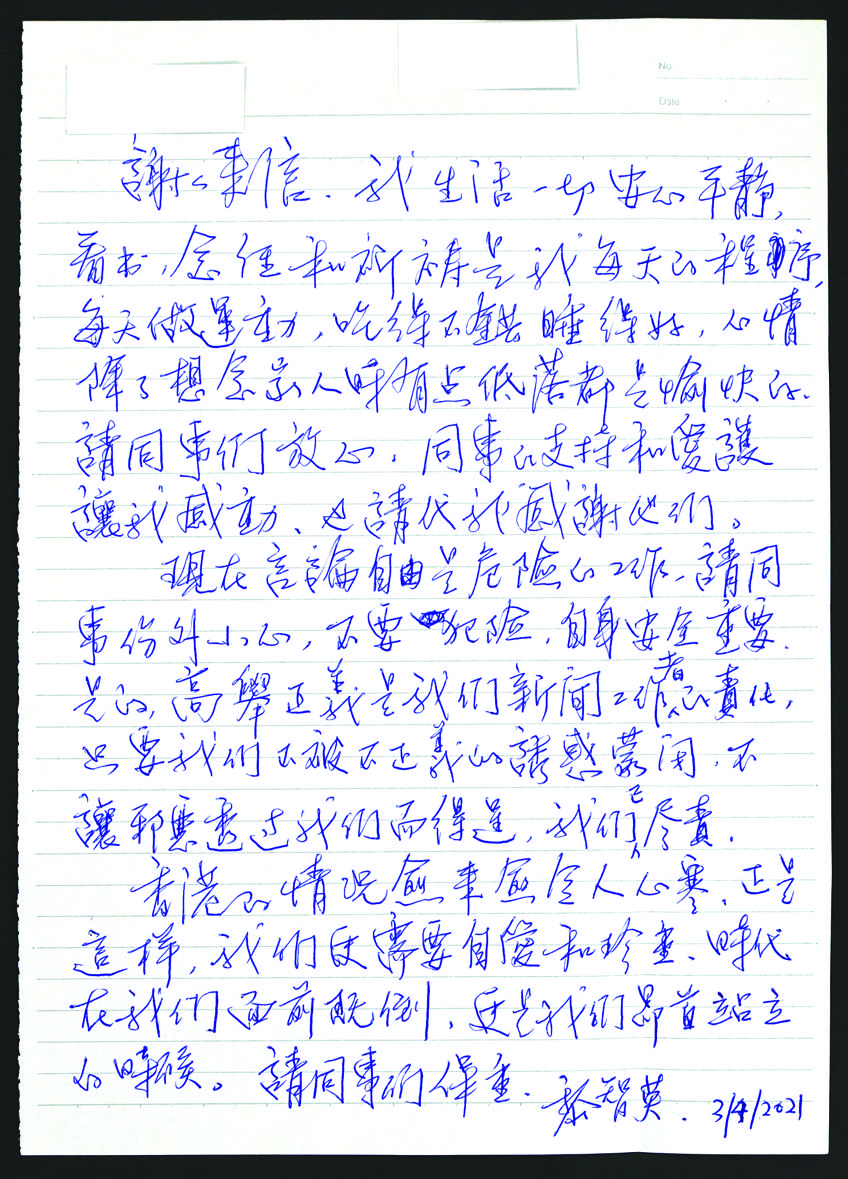 No.
Date
謝々來信．我生活一切安心平靜，
看书，念经和祈祷是我每天的程序，
每天做運動，吃得不錯睡得好，心情
除了想念家人時有点低落都是愉快的．
請同事们放心．同事的支持和愛護
讓我感動、也請代我感謝他们。
現在言論自由是危險的工作．請同
事份外小心，不要犯險．自身安全重要．
是的，高舉正義是我们新聞工作者的責任，
只要我们不被不正義的誘惑蒙闭．不
讓邪惡透过我们而得逞，我们已尽責．
香港的情况愈來愈令人心寒．正是
這样，我们更需要自愛和珍重．時代
在我们面前既倒，更是我们昂首站立
的時候。請同事们保重．
黎智英．3/4/2021